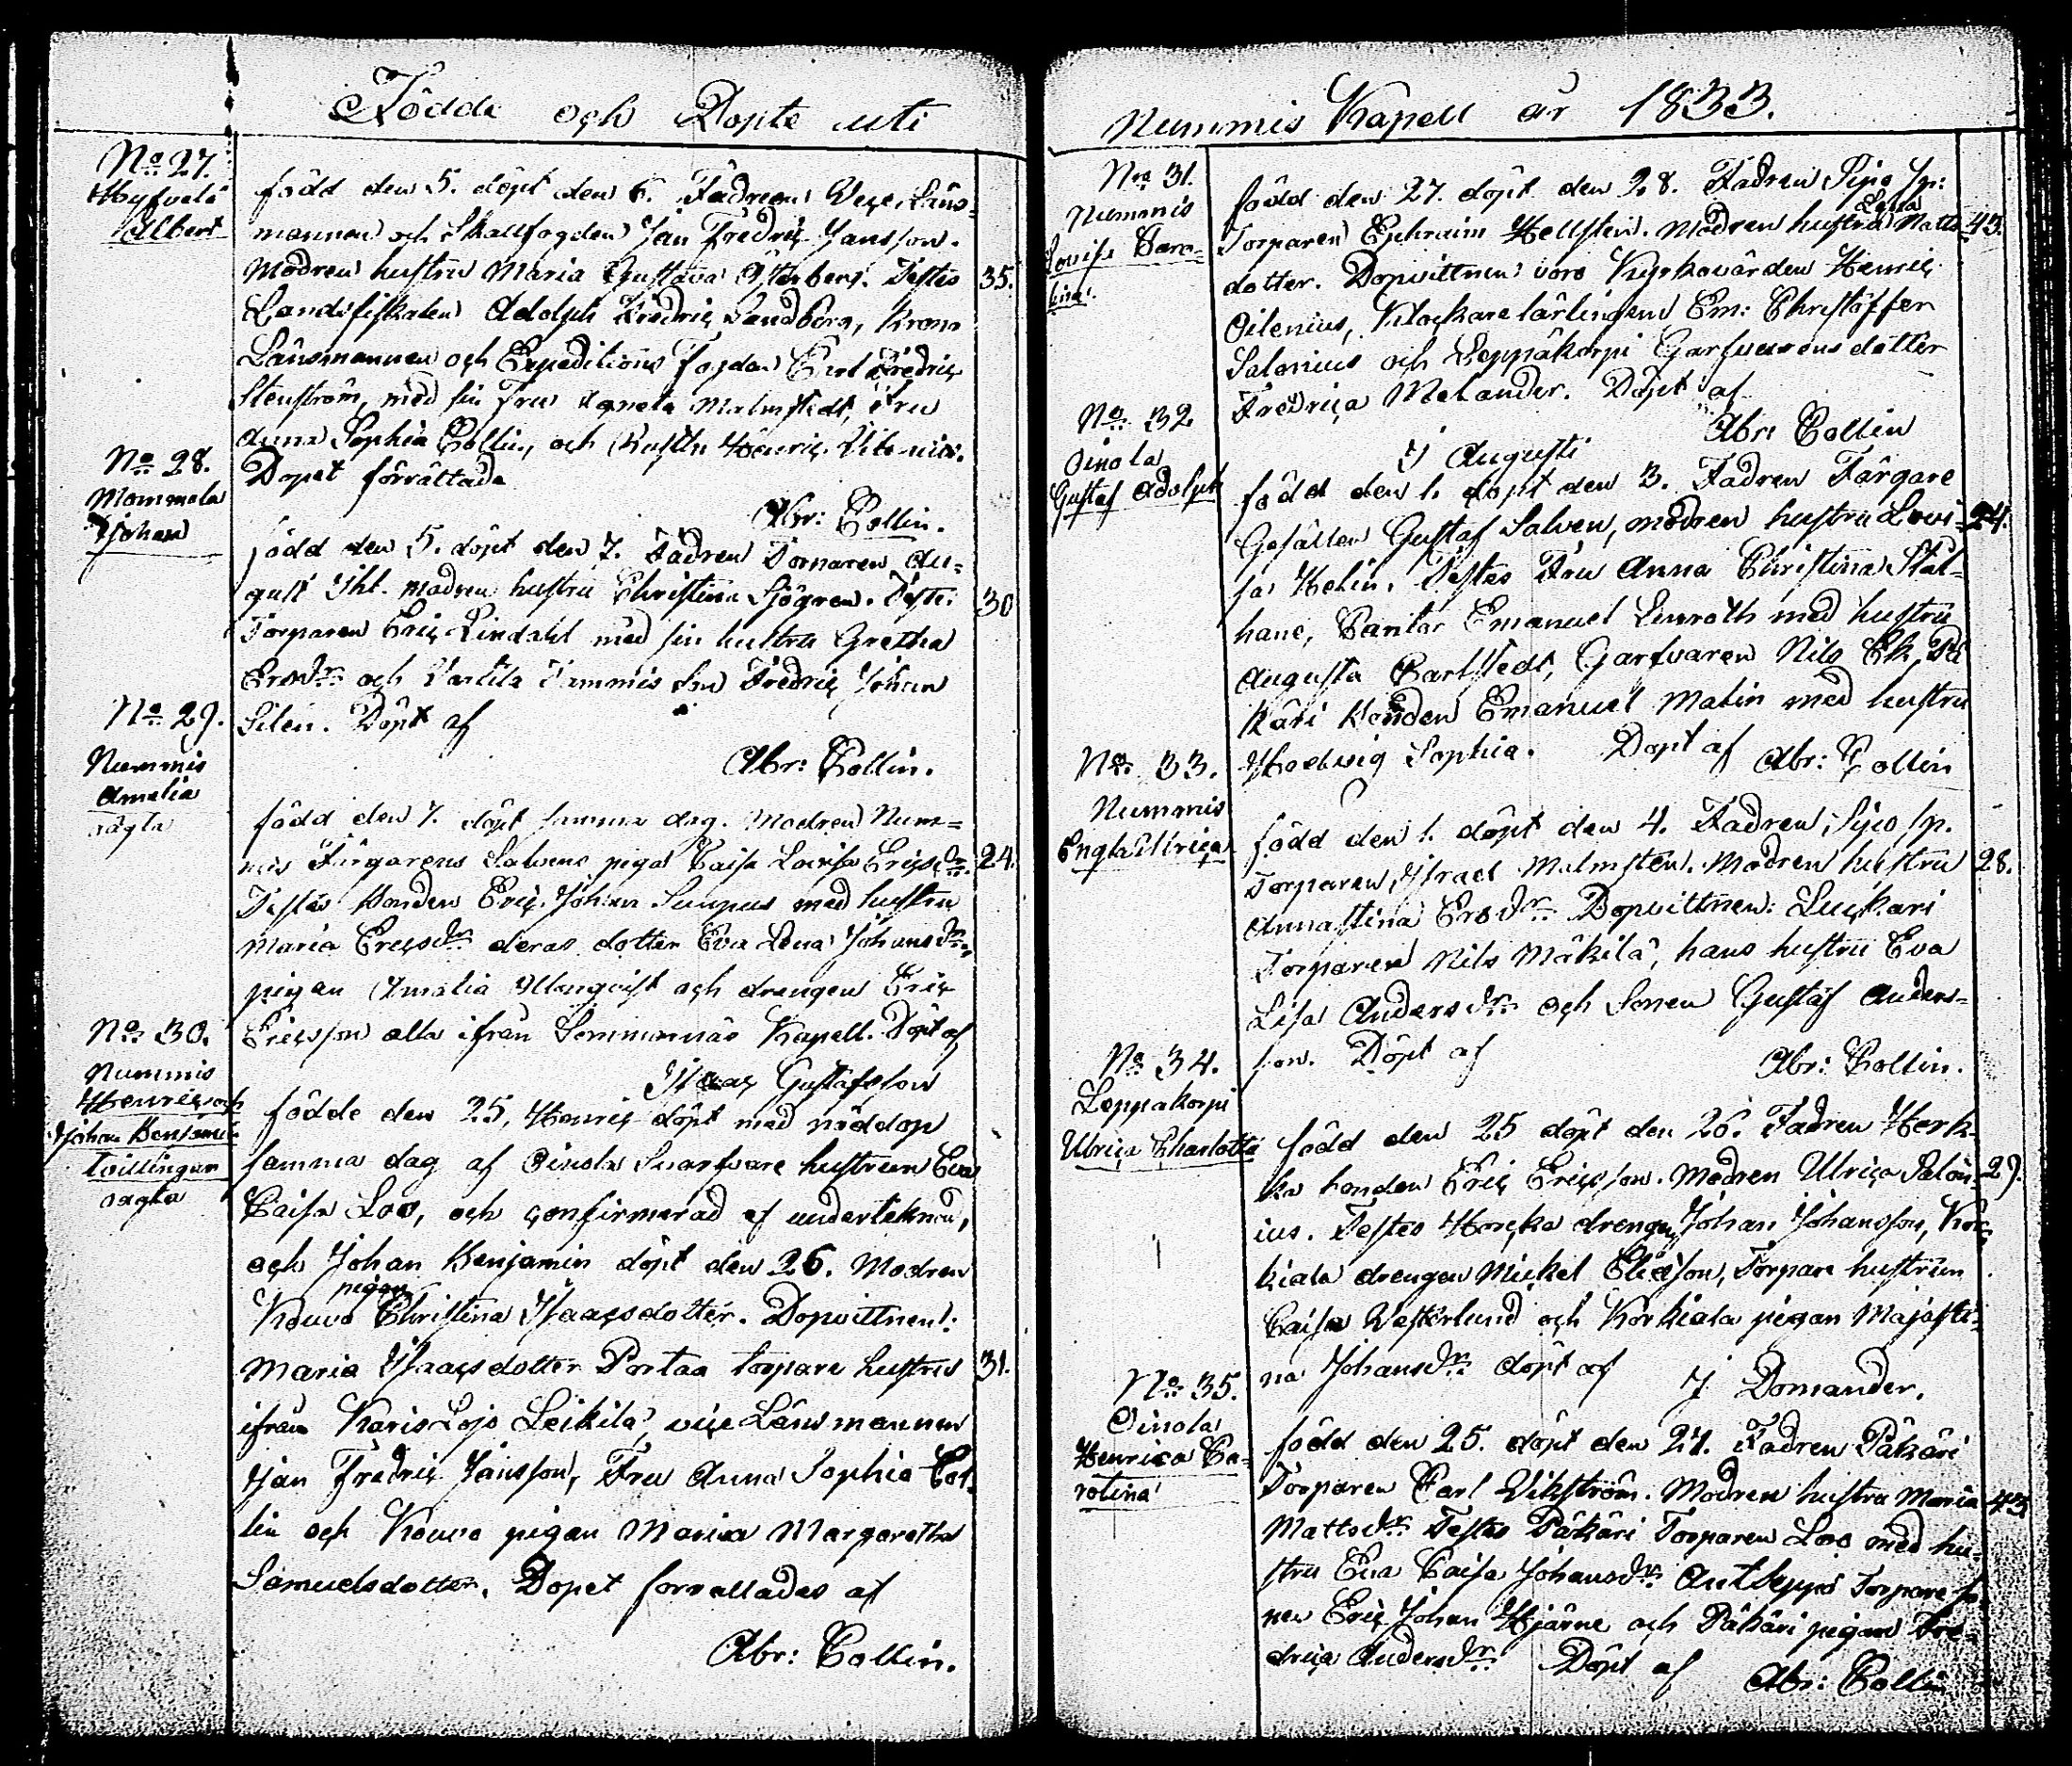 Födde och Döpte uti
No 27.
Hyfvelä
Albert
född den 5. döpt den 6. Fadren Vice Läns-
mannen och Skallfogden Jan Fredric Jansson.
Modren hustru Maria Gustava Österberg. Testes 35.
Landsfiskalen Adolph Fredric Sandberg, Krono
Länsmannen och Expeditions fogden Carl Fredric
Stenström, med sin Fru Agneta Malmstedt, Fru
Anna Sophia Collin, och Henric
Dopet förrättade
Abr: Collin.
No 28.
Mommola
Johan
född den 5. döpt den 7. Fadren Torparen Au-
gust Modren hustru Christina Sjögren. Testes 30
Torparen Eric Lindahl med sin hustru Gretha
Ersdr och Fredric Johan
Silen. Döpt af
Abr: Collin.
No 29.
Nummis
Amalia
oägta
född den 7. döpt samma dag. Modren Num-
mis Färgarens Salvens piga Caisa Lovisa Ericsdr. 24.
Testes bonden Eric Johan med hustru
Maria Ericsdr deras dotter Eva Lena Johansdr.
pigan Amalia och drengen Eric
Ericsson alla ifrån Sommarnäs Kapell. Döpt af
Isaac Gustafsson
No 30.
Nummis
Henric och
Johan Benjamin
tvillingar
oägta
födde den 25, Henric döpt med nöddop
samma dag af Oinola Svarfvare hustrun Eva
Caisa Loo, och confirmerad af underteknad,
och Johan Benjamin döpt den 26. Modren
pigan
Kouvo Christina Isaacsdotter. Dopvittnen:
Maria Isaacsdotter Portaa torpare hustru 31.
ifrån Karis Lojo Leikilä, vice Länsmannen
Jan Fredric Jansson, Fru Anna Sophia Col-
lin och Kouvo pigan Maria Margaretha
Samuelsdotter. Dopet forrattades af
Abr: Collin.
Nummis Kapell år 1833.
No 31.
Nummis
Lovisa Caro-
lina
född den 27. döpt den 28. Fadren Sjö sp:
Lena
Torparen Ephraim Hellsten. Modren hustru Matts- 43.
dotter. Dopvittnen voro Kyrkovärden Henric
Oilenius, Klockare lärlingen Em: Christoffer
Salonius och Leppäkorpi Garfvarens dotter
Fredrica Melander. Döpt af
Abr: Collin
I Augusti
No 32
Oinola
Gustaf Adolph
född den 1. döpt den 3. Fadren Färgare
Gesällen Gustaf Salven, modren hustru Lovi- 24.
sa Helin. Testes Fru Anna Christina Stål-
hane, Cantor Emanuel Lenroth med hustru
Augusta Carlstedt, Garfvaren Nils Ek, Pä
käri bonden Emanuel Malin med hustru
Hedvig Sophia. Döpt af
Abr: Collin
No 33.
Nummis
Engla Ulrica
född den 1. döpt den 4. Fadren Sjö sp.
Torparen, Israel Malmsten. Modren hustru 28.
Annastina Ersdr Dopvittnen: Luckari
Torparen Nils Mäkilä, hans hustru Eva
Lisa Andersdr och Sonen Gustaf Anders-
son. Döpt af
Abr: Collin.
No 34.
Leppakorpi
Ulrica Charlotta
född den 25 döpt den 26. Fadren Hork-
ka bonden Eric Ericsson. Modren Ulrica Salon- 29.
ius. Testes Horcka drengen Johan Johansson, Kor-
kiala drengen Mickel Eliasson, Torpare hustrun
Caisa Vesterlund och Korkiala pigan Majasti-
na Johansdr döpt af
J Domander.
No 35.
Oinola
Henrica Ca-
rolina
född den 25. döpt den 27. Fadren Päkäri
Torparen Carl Vikström. Modren hustru Maria 43
Mattsdr Testes Päkäri Torparen Loo med hu-
stru Eva Caisa Johansdr Antseppä Torpare so
nen Eric Johan Hjärne och Päkäri pigan Fre-
drica Andersdr Döpt af
Abr: Collin